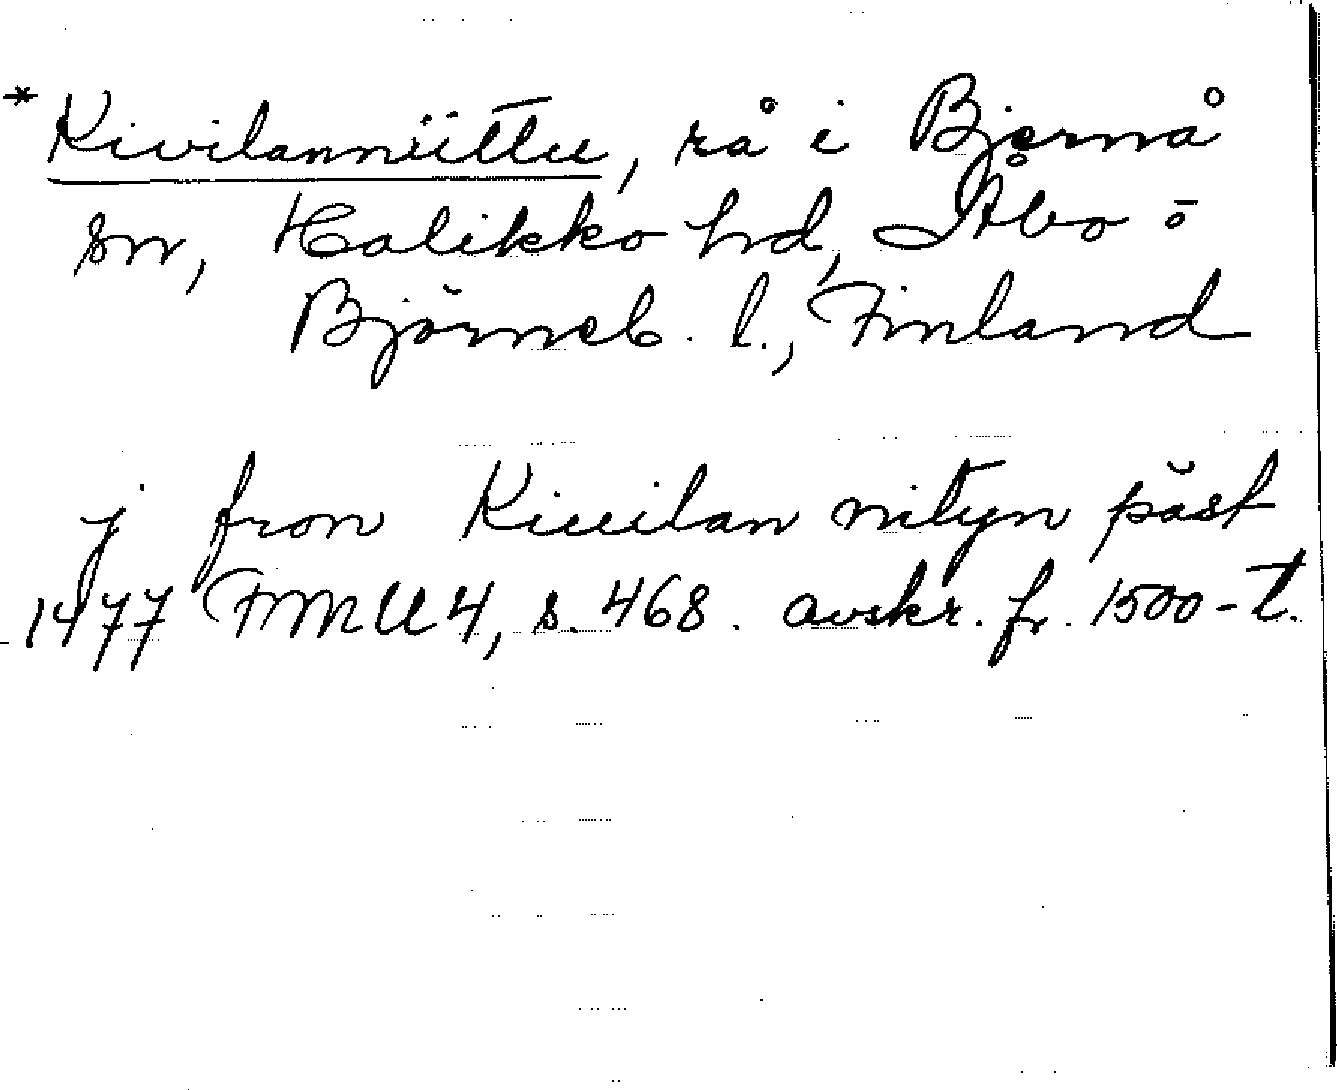 * Kivilanniittu, rå i Bjernå
sn, Halikko hd, Åbo ō
Björneb. l., Finland
j fron Kiuilan nityn päst
1477 FMU 4, s. 468. avskr. fr. 1500-t.